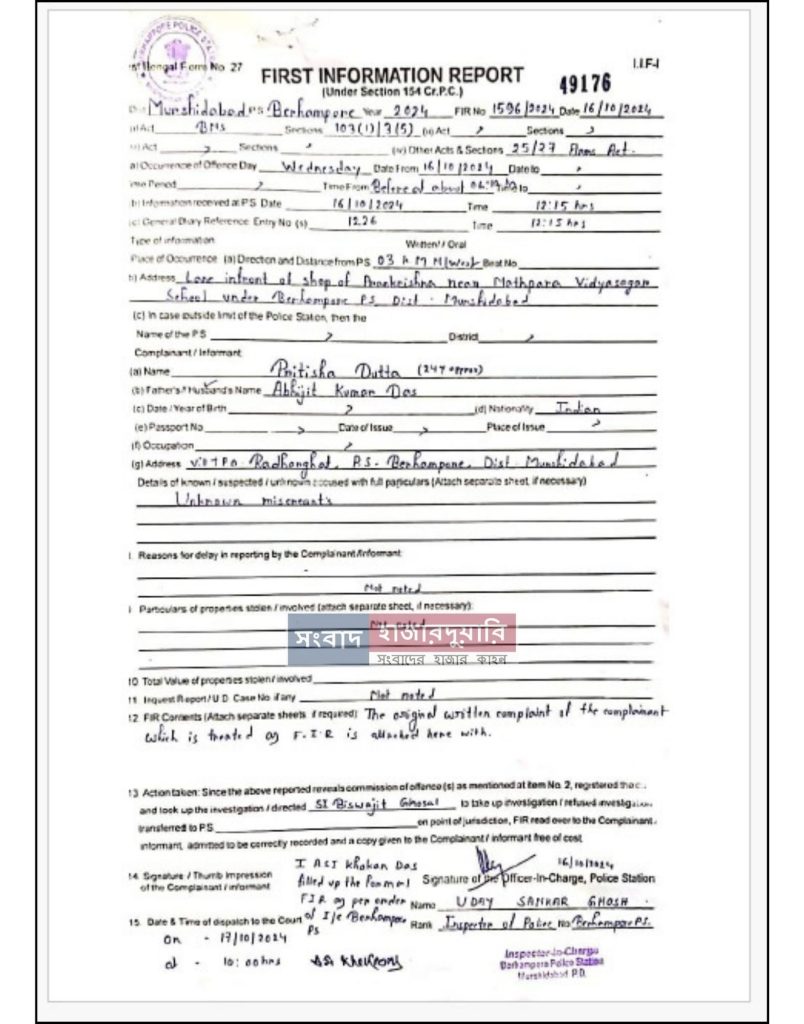 BERHAMPORE POLICE STA
st Bengal Form No 27
I.I.F-I
FIRST INFORMATION REPORT
(Under Section 154 Cr.P.C.)
49176
Murshidabad P.S Berhampore Year 2024 FIR No 1596/2024 Date 16/10/2024
Act BNS Sections 103(1)/3(5) (ii) Act Sections
Act Sections (iv) Other Acts & Sections 25/27 Arms Act.
a) Occurrence of Offence Day Wednesday Date From 16/10/2024 Date to
ime Period Time From Before at about to
b) Information received at P.S. Date 16/10/2024 Time 12:15 hrs
(c) General Diary Reference Entry No (s) 1226 Time 12:15 hrs
Type of information Written / Oral
Place of Occurrence (a) Direction and Distance from P.S 03 K M M/West Beat No
b) Address Lane infront of shop of Prankrishna near Mathpara Vidyasagar
School under Berhampore P.S. Dist - Murshidabad
(c) In case outside limit of the Police Station, then the
Name of the P.S District
Complainant / Informant
(a) Name Pritisha Dutta
(b) Father's / Husband's Name Abhijit Kumar Das
(c) Date / Year of Birth (d) Nationality Indian
(e) Passport No Date of Issue Place of Issue
(f) Occupation
(g) Address Vill+P.O. Radharghat, P.S- Berhampore, Dist- Murshidabad
Details of known / suspected / unknown accused with full particulars (Attach separate sheet, if necessary)
Unknown miscreants
Reasons for delay in reporting by the Complainant/Informant
Not noted
Particulars of properties stolen / involved (attach separate sheet, if necessary):
Not noted
সংবাদ হাজারদুয়ারি
সংবাদের হাজার কাহন
10 Total Value of properties stolen / involved
11 Inquest Report / U.D Case No if any Not noted
12 FIR Contents (Attach separate sheets if required) The original written complaint of the complainant
which is treated as F.I.R is attached here with.
13 Action taken: Since the above reported reveals commission of offence (s) as mentioned at item No. 2, registered the c..
and took up the investigation / directed SI Biswajit Ghosal to take up investigation / refused investigation
transferred to P.S on point of jurisdiction, FIR read over to the Complainant.
informant, admitted to be correctly recorded and a copy given to the Complainant / informant free of cost
I ASI Khokan Das 16/10/2024
14. Signature / Thumb Impression filled up the formal Signature of the Officer-In-Charge, Police Station
of the Complainant / informant FIR as per order Name UDAY SANKAR GHOSH
15. Date & Time of dispatch to the Court of I/c Berhampore Rank Inspector of Police No Berhampore P.S.
PS
On - 17/10/2024
at - 10:00hrs ASI
Inspector-in-Charge
Berhampore Police Station
Murshidabad P.D.